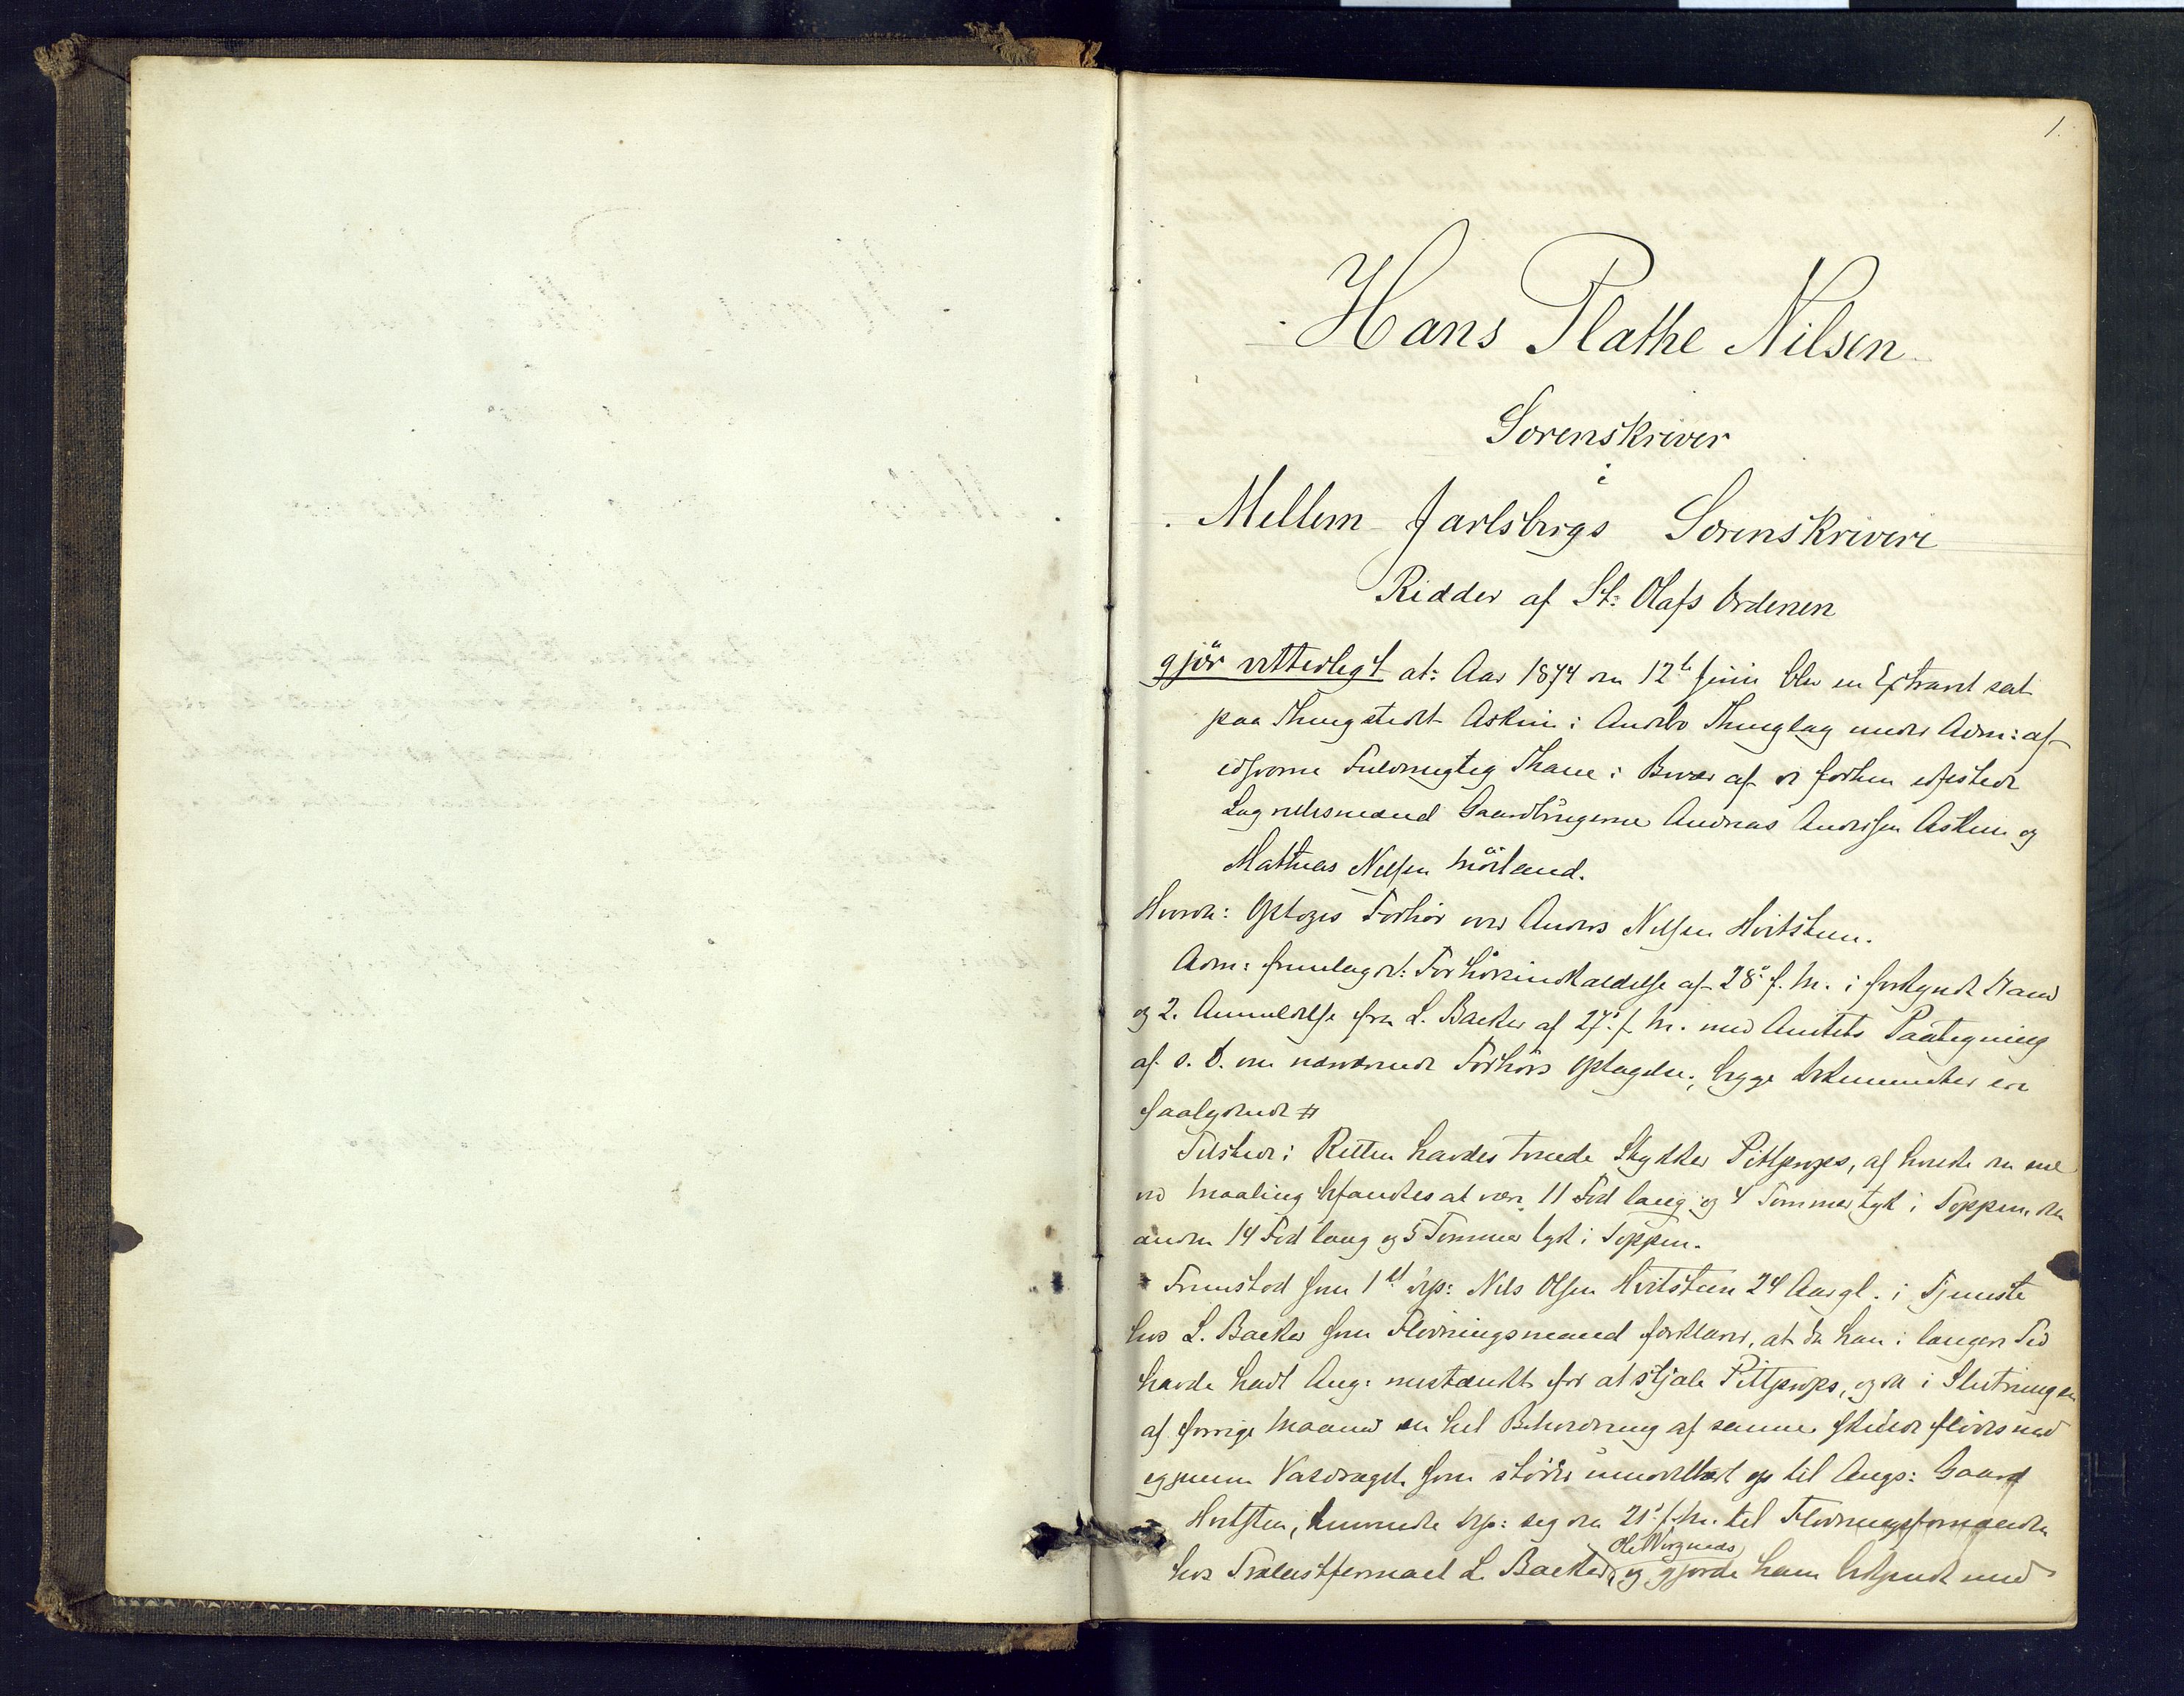 1.
Hans Plathe Nilsen
Sorenskriver
i
Mellem Jarlsbergs Sorenskriveri
Ridder af St: Olafs Ordenen
gjör vitterligt at: Aar 1874 den 12te Juni blev en Extraret sat
paa Thingstedet Askim i Andebo Thinglag under Adm: af
edsvorne Fuldmægtig Thaue i Bivær af de forhen edfæstede
Lagrettesmænd Gaardbrugerne Andreas Andersen Askim og
Mathias Nilsen Mörland.
Hvorda: Optoges Forhör over Anders Nilsen Hvitsteen.
Adm: fremlagde: Forhörsindkaldelse af 28de f. M. i forkyndt Stand
og 2. Anmeldelse fra L. Backer af 27de f. M. med Amtets Paategning
af s. D. om nærværende Forhörs Optagelse; begge Dokumenter ere
saalydende #
Tilstede i Retten havdes tvende Stykker Pittprops, af hvilke den ene
ved Maaling befandtes at være 11 Fod lang og 4 Tommer tyk i Toppen, den
anden 14 Fod lang og 5 Tommer tyk i Toppen.
Fremstod som 1ste Dep: Nils Olsen Hvitsteen 24 Aar gl. i Tjeneste
hos L. Backer som Flödningsmand forklarer, at da han i længere Tid
havde havt Ang: mistænkt for at stjæle Pittprops, og da i Slutningen
af forrige Maaned en hel Beholdning af samme skulde flödes ned
igjennem Vasdraget, som støder umiddelbart op til Angs: Gaard
Hvitsten, henvendte Dep: sig den 21de f. M. til Flödningsformanden
Ole Virgenæs
hos Trælastfirmaet L. Backer, og gjorde ham bekjendt med